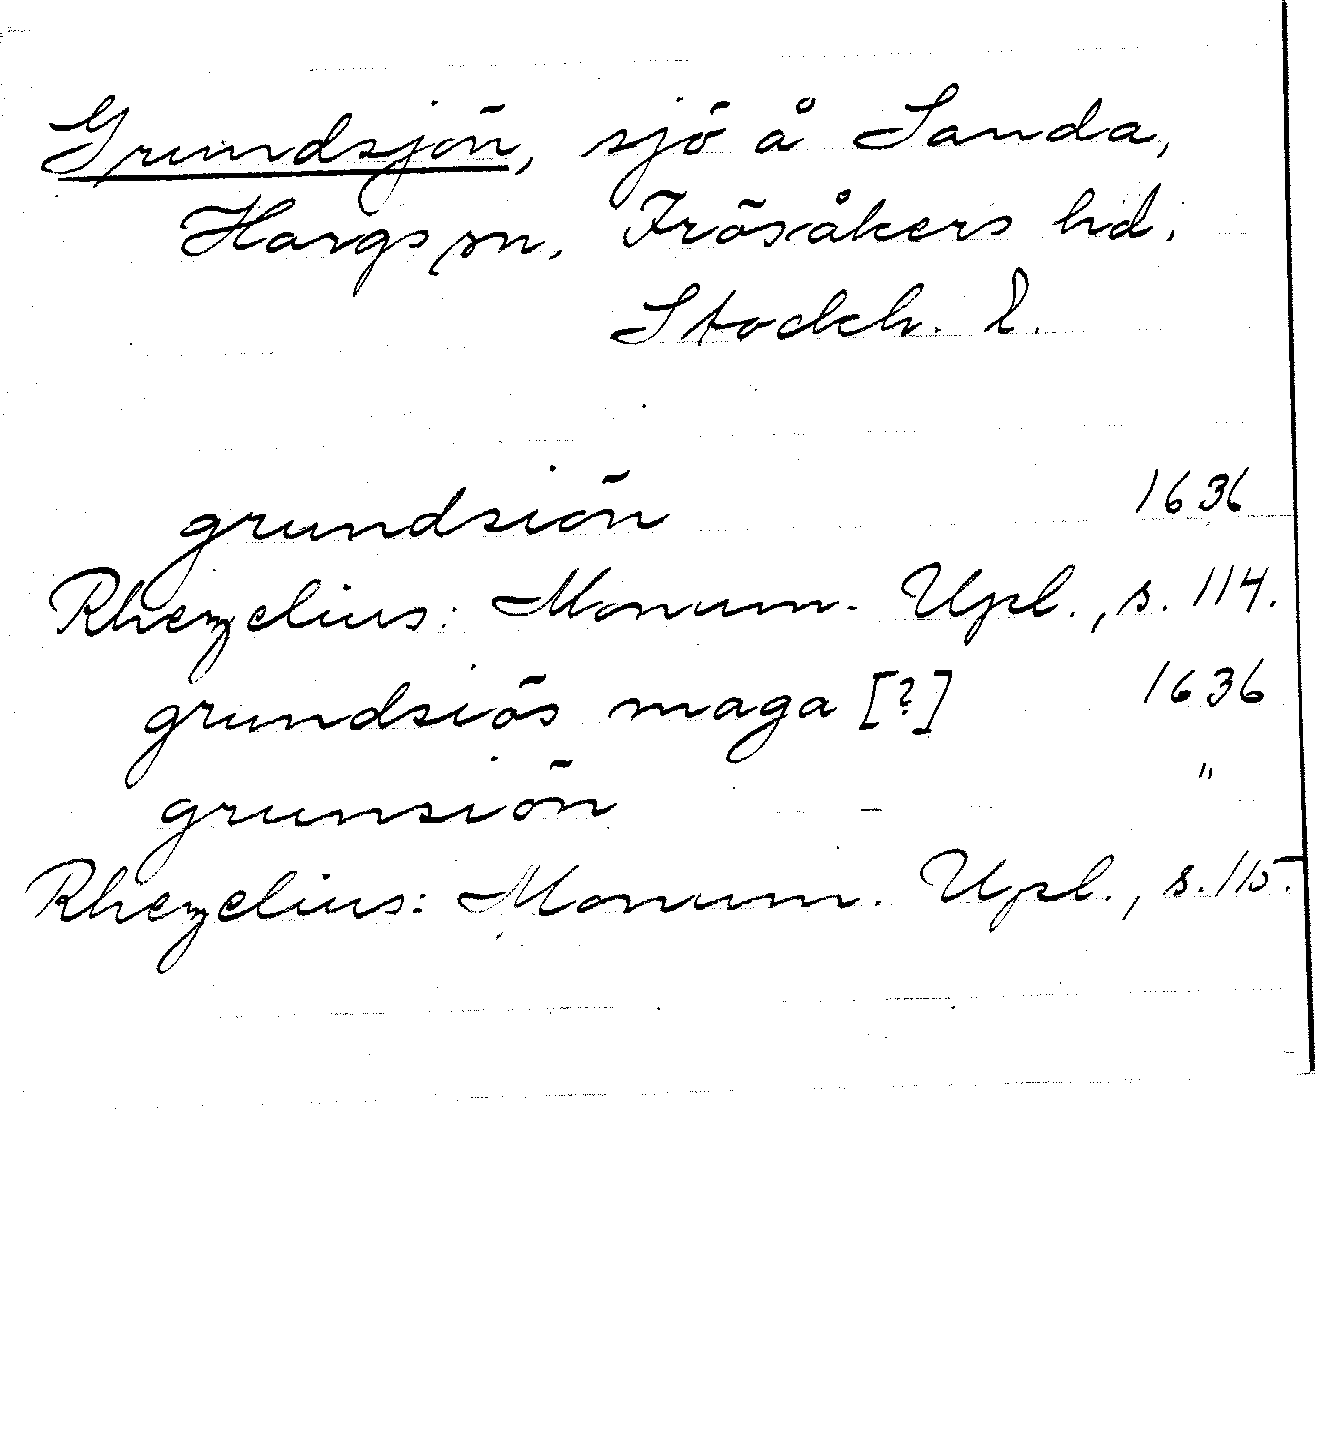 Grundsjön, sjö å Sanda,
Hargs sn, Frösåkers hd,
Stockh. l.
grundsiön 1636
Rhezelius: Monum. Upl., s. 114.
grundsiös maga [?] 1636
grunsiön - "
Rhezelius: Monum. Upl., s. 115.